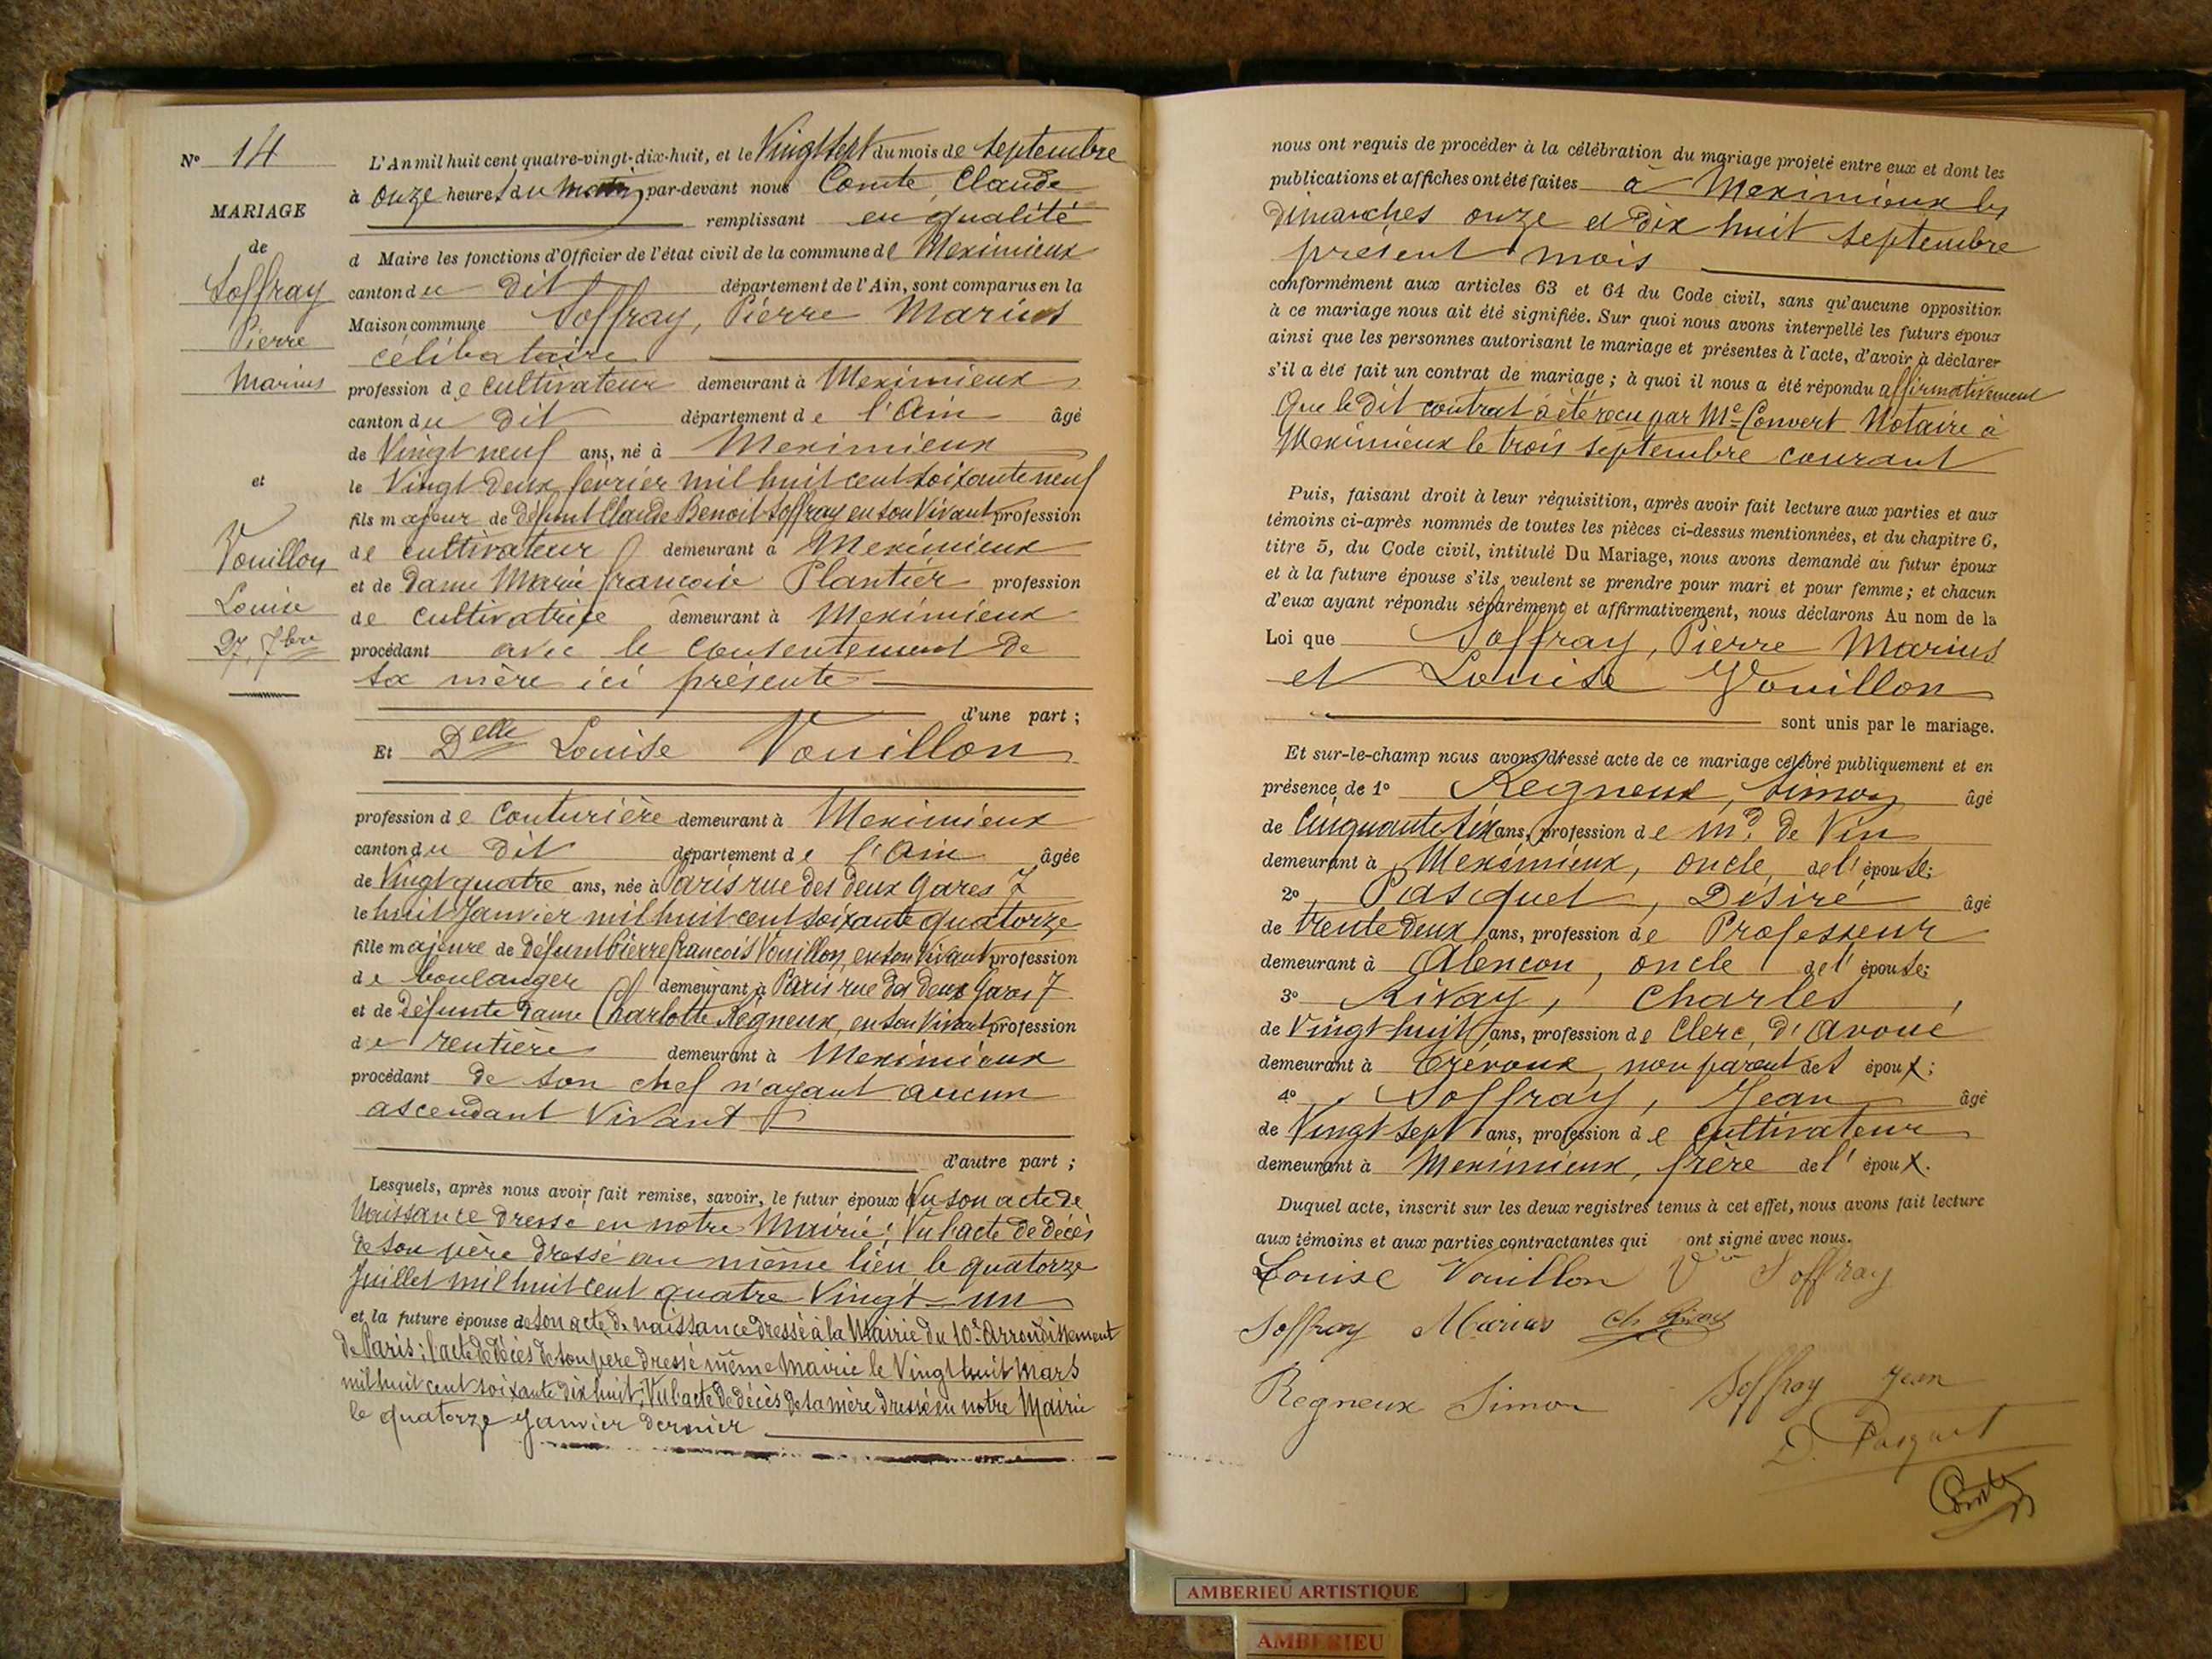 N° 14
MARIAGE
de
Soffray
Pierre
Marius
et
Vouillon
Louise
27 7bre
L'An mil huit cent quatre-vingt-dix-huit, et le Vingt sept du mois de septembre
à onze heures du matin, par-devant nous Comte Claude
remplissant en qualité
d Maire les fonctions d'Officier de l'état civil de la commune de Meximieux
canton du dit département de l'Ain, sont comparus en la
Maison commune Soffray, Pierre Marius
célibataire
profession de cultivateur demeurant à Meximieux
canton du dit département de l'Ain âgé
de Vingt neuf ans, né à Meximieux
le Vingt deux février mil huit cent soixante neuf
fils majeur de défunt Claude Benoit Soffray en son Vivant profession
de cultivateur demeurant à Meximieux
et de dame Marie françoise Plantier profession
de cultivatrice demeurant à Meximieux
procédant avec le consentement de
sa mère ici présente
d'une part ;
Et Delle Louise Vouillon
profession de Couturière demeurant à Meximieux
canton du dit département de l'Ain âgée
de Vingt quatre ans, née à Paris rue des deux Gares 7
le huit Janvier mil huit cent soixante quatorze
fille majeure de défunt Pierre françois Vouillon, en son vivant profession
de boulanger demeurant à Paris rue des deux Gares 7
et de défunte dame Charlotte Regneux, en son Vivant profession
de rentière demeurant à Meximieux
procédant de son chef n'ayant aucun
ascendant Vivant
d'autre part ;
Lesquels, après nous avoir fait remise, savoir, le futur époux Vu son acte de
Naissance dressé en notre Mairie ; Vu l'acte de décès
de son père dressé au même lieu le quatorze
Juillet mil huit cent quatre Vingt un
et la future épouse de son acte de naissance dressé à la Mairie du 10e Arrondissement
de Paris ; l'acte de décès de son père dressé même Mairie le Vingt huit Mars
mil huit cent soixante dix huit ; Vu l'acte de décès de sa mère dressé en notre Mairie
le quatorze Janvier dernier
nous ont requis de procéder à la célébration du mariage projeté entre eux et dont les
publications et affiches ont été faites à Meximieux les
dimanches onze et dix huit septembre
présent mois
conformément aux articles 63 et 64 du Code civil, sans qu'aucune opposition
à ce mariage nous ait été signifiée. Sur quoi nous avons interpellé les futurs époux
ainsi que les personnes autorisant le mariage et présentes à l'acte, d'avoir à déclarer
s'il a été fait un contrat de mariage ; à quoi il nous a été répondu affirmativement
Que le dit contrat a été reçu par Me Convert Notaire à
Meximieux le trois septembre courant
Puis, faisant droit à leur réquisition, après avoir fait lecture aux parties et aux
témoins ci-après nommés de toutes les pièces ci-dessus mentionnées, et du chapitre 6,
titre 5, du Code civil, intitulé Du Mariage, nous avons demandé au futur époux
et à la future épouse s'ils veulent se prendre pour mari et pour femme ; et chacun
d'eux ayant répondu séparément et affirmativement, nous déclarons Au nom de la
Loi que Soffray, Pierre Marius
et Louise Vouillon
sont unis par le mariage.
Et sur-le-champ nous avons dressé acte de ce mariage célébré publiquement et en
présence de 1° Regneux, Simon âgé
de Cinquante six ans, profession de md de Vin
demeurant à Meximieux, oncle de l'épouse ;
2° Pasquet, Désiré âgé
de trente deux ans, profession de Professeur
demeurant à Alençon, oncle de l'épouse ;
3° Rivay, Charles,
de Vingt huit ans, profession de Clerc d'avoué
demeurant à Trévoux, non parent des époux ;
4° Soffray, Jean âgé
de Vingt sept ans, profession de cultivateur
demeurant à Meximieux, frère de l'époux.
Duquel acte, inscrit sur les deux registres tenus à cet effet, nous avons fait lecture
aux témoins et aux parties contractantes qui ont signé avec nous.
Louise Vouillon Vve Soffray
Soffray Marius Ch Rivay
Regneux Simon Soffray Jean
D. Pasquet
Comte
AMBERIEU ARTISTIQUE
AMBERIEU